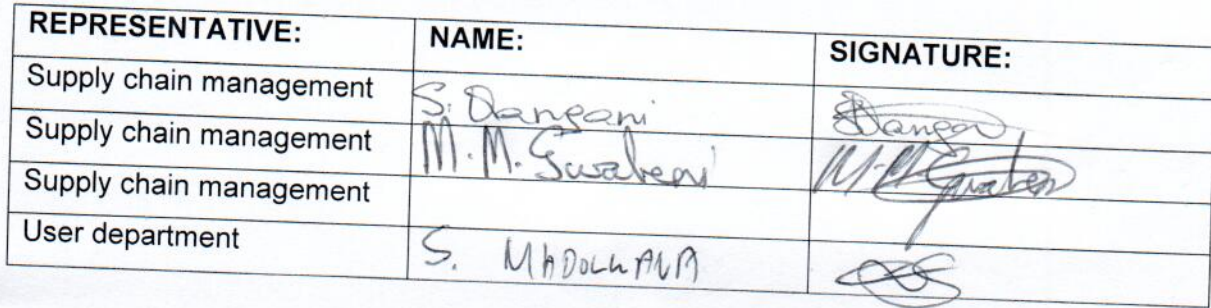 REPRESENTATIVE: NAME: SIGNATURE:
Supply chain management S. Dangani
Supply chain management M. M. Gwabeni M. M. Gwabeni
Supply chain management
User department S.